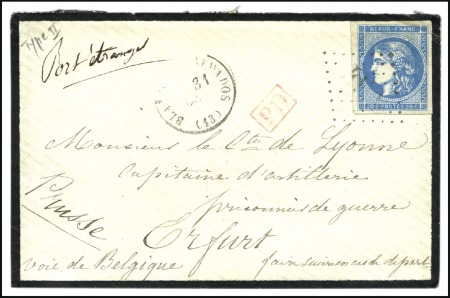 Type II
Port étranger
REPUB. FRANC.
31
(13)
PD
Monsieur le Cte de Lyonne
Capitaine d'artillerie
prisonnier de guerre
Prusse
Erfurt
voie de Belgique
faire suivre en cas de départ